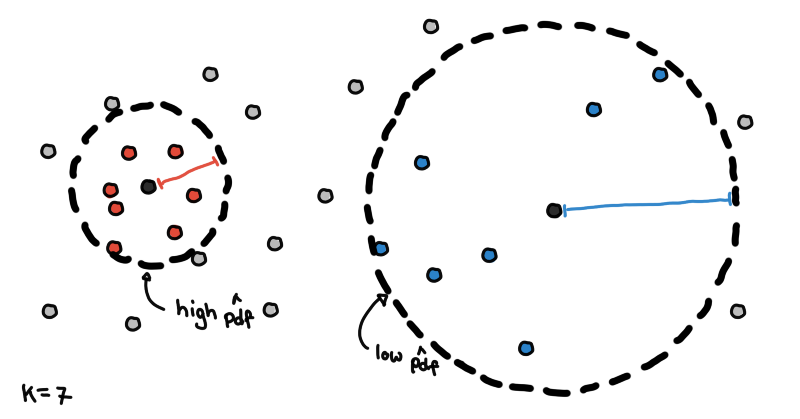 high p̂dp
low p̂dp
K=7